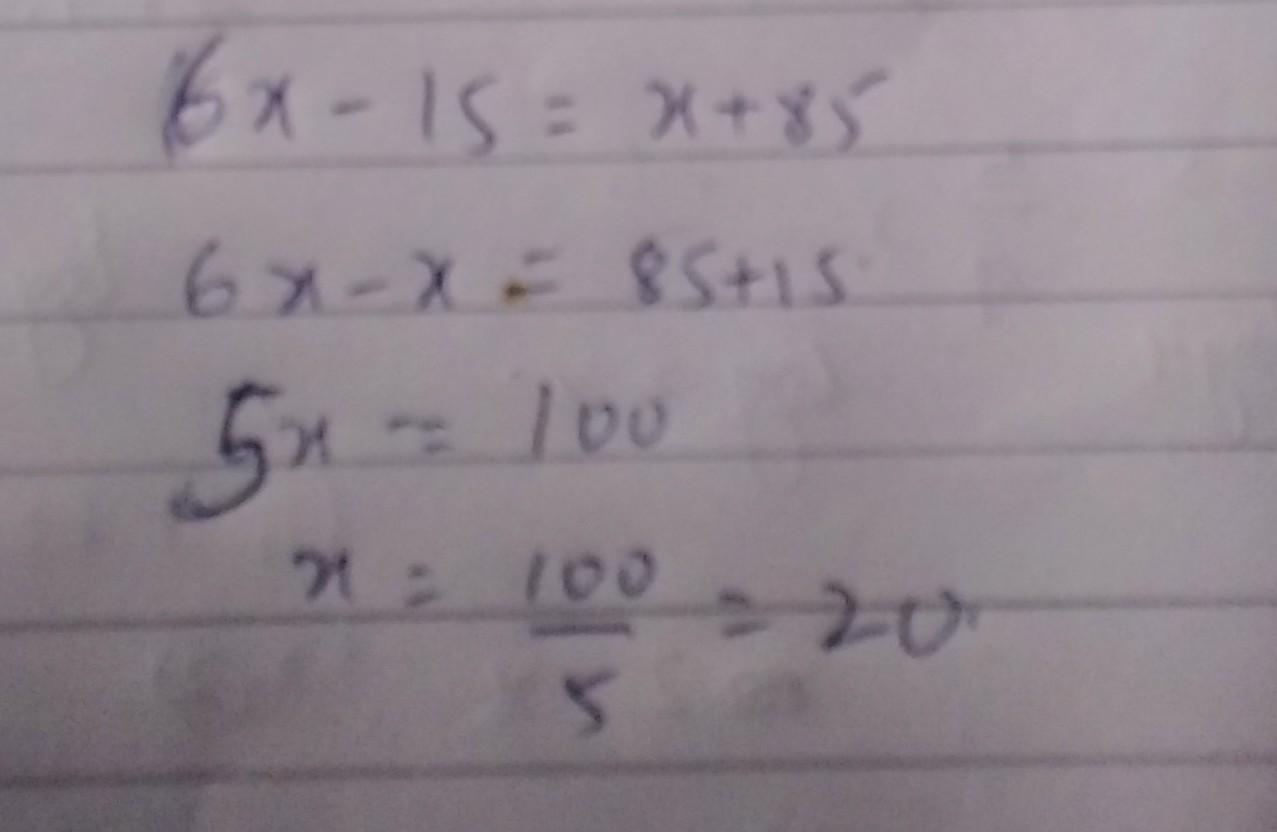 6x - 15 = x + 85
6x - x = 85 + 15
5x = 100
x = 100/5 = 20